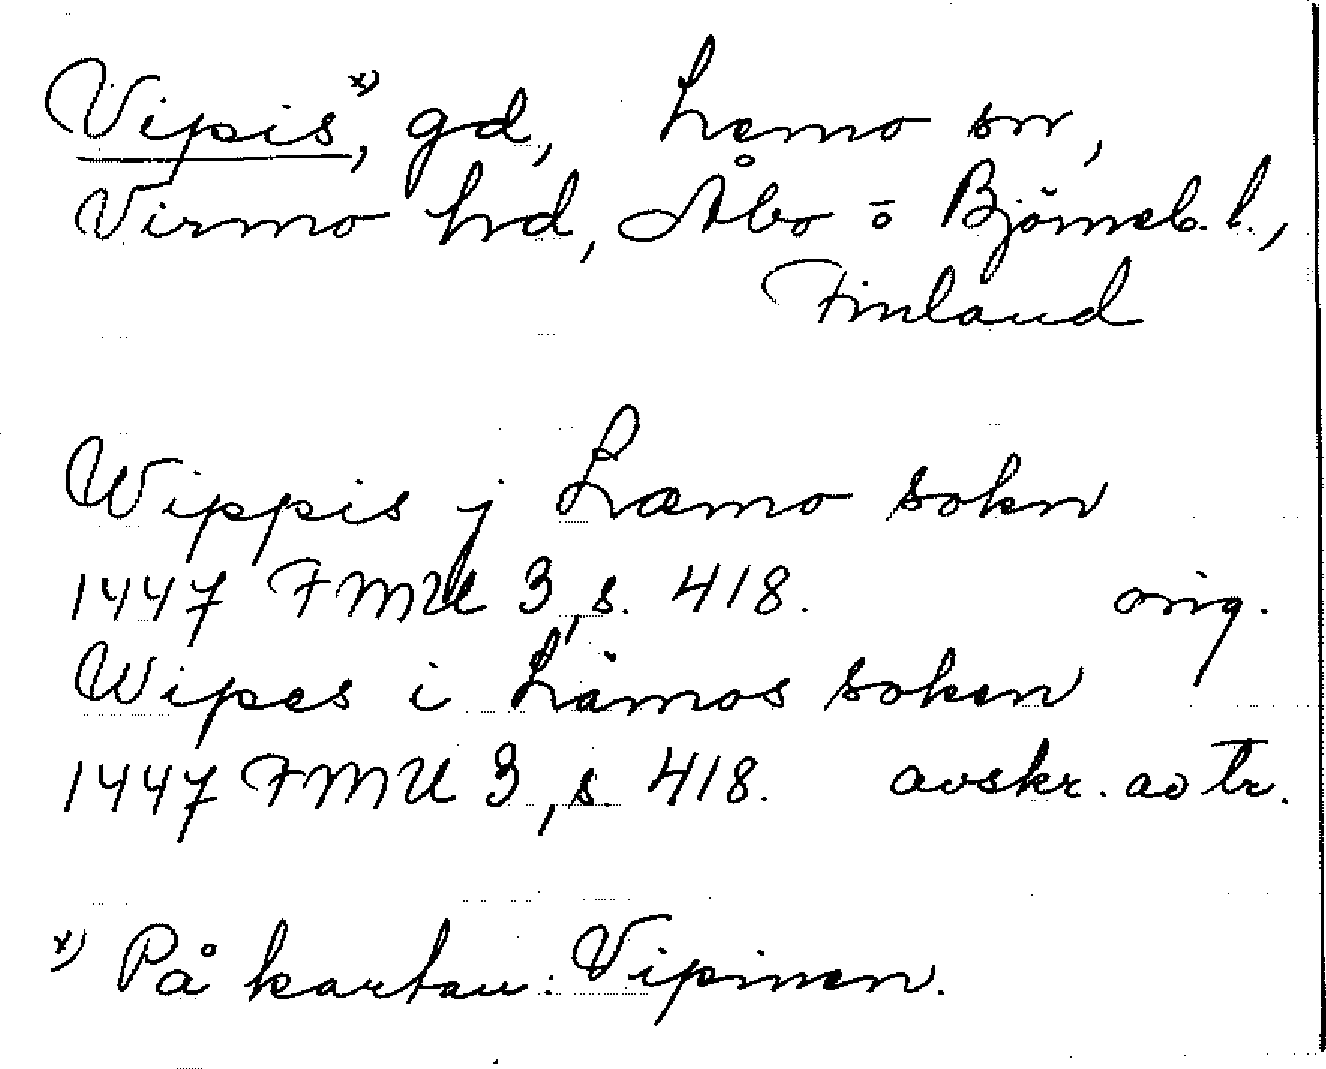 Vipis ˣ⁾, gd, Lemo sn,
Virmo hd, Åbo o Björneb. l.,
Finland
Wippis j Læmo sokn
1447 FMU 3, s. 418. orig.
Wipes i Lämos soken
1447 FMU 3, s. 418. avskr. av tr.
ˣ⁾ På kartan: Vipinen.